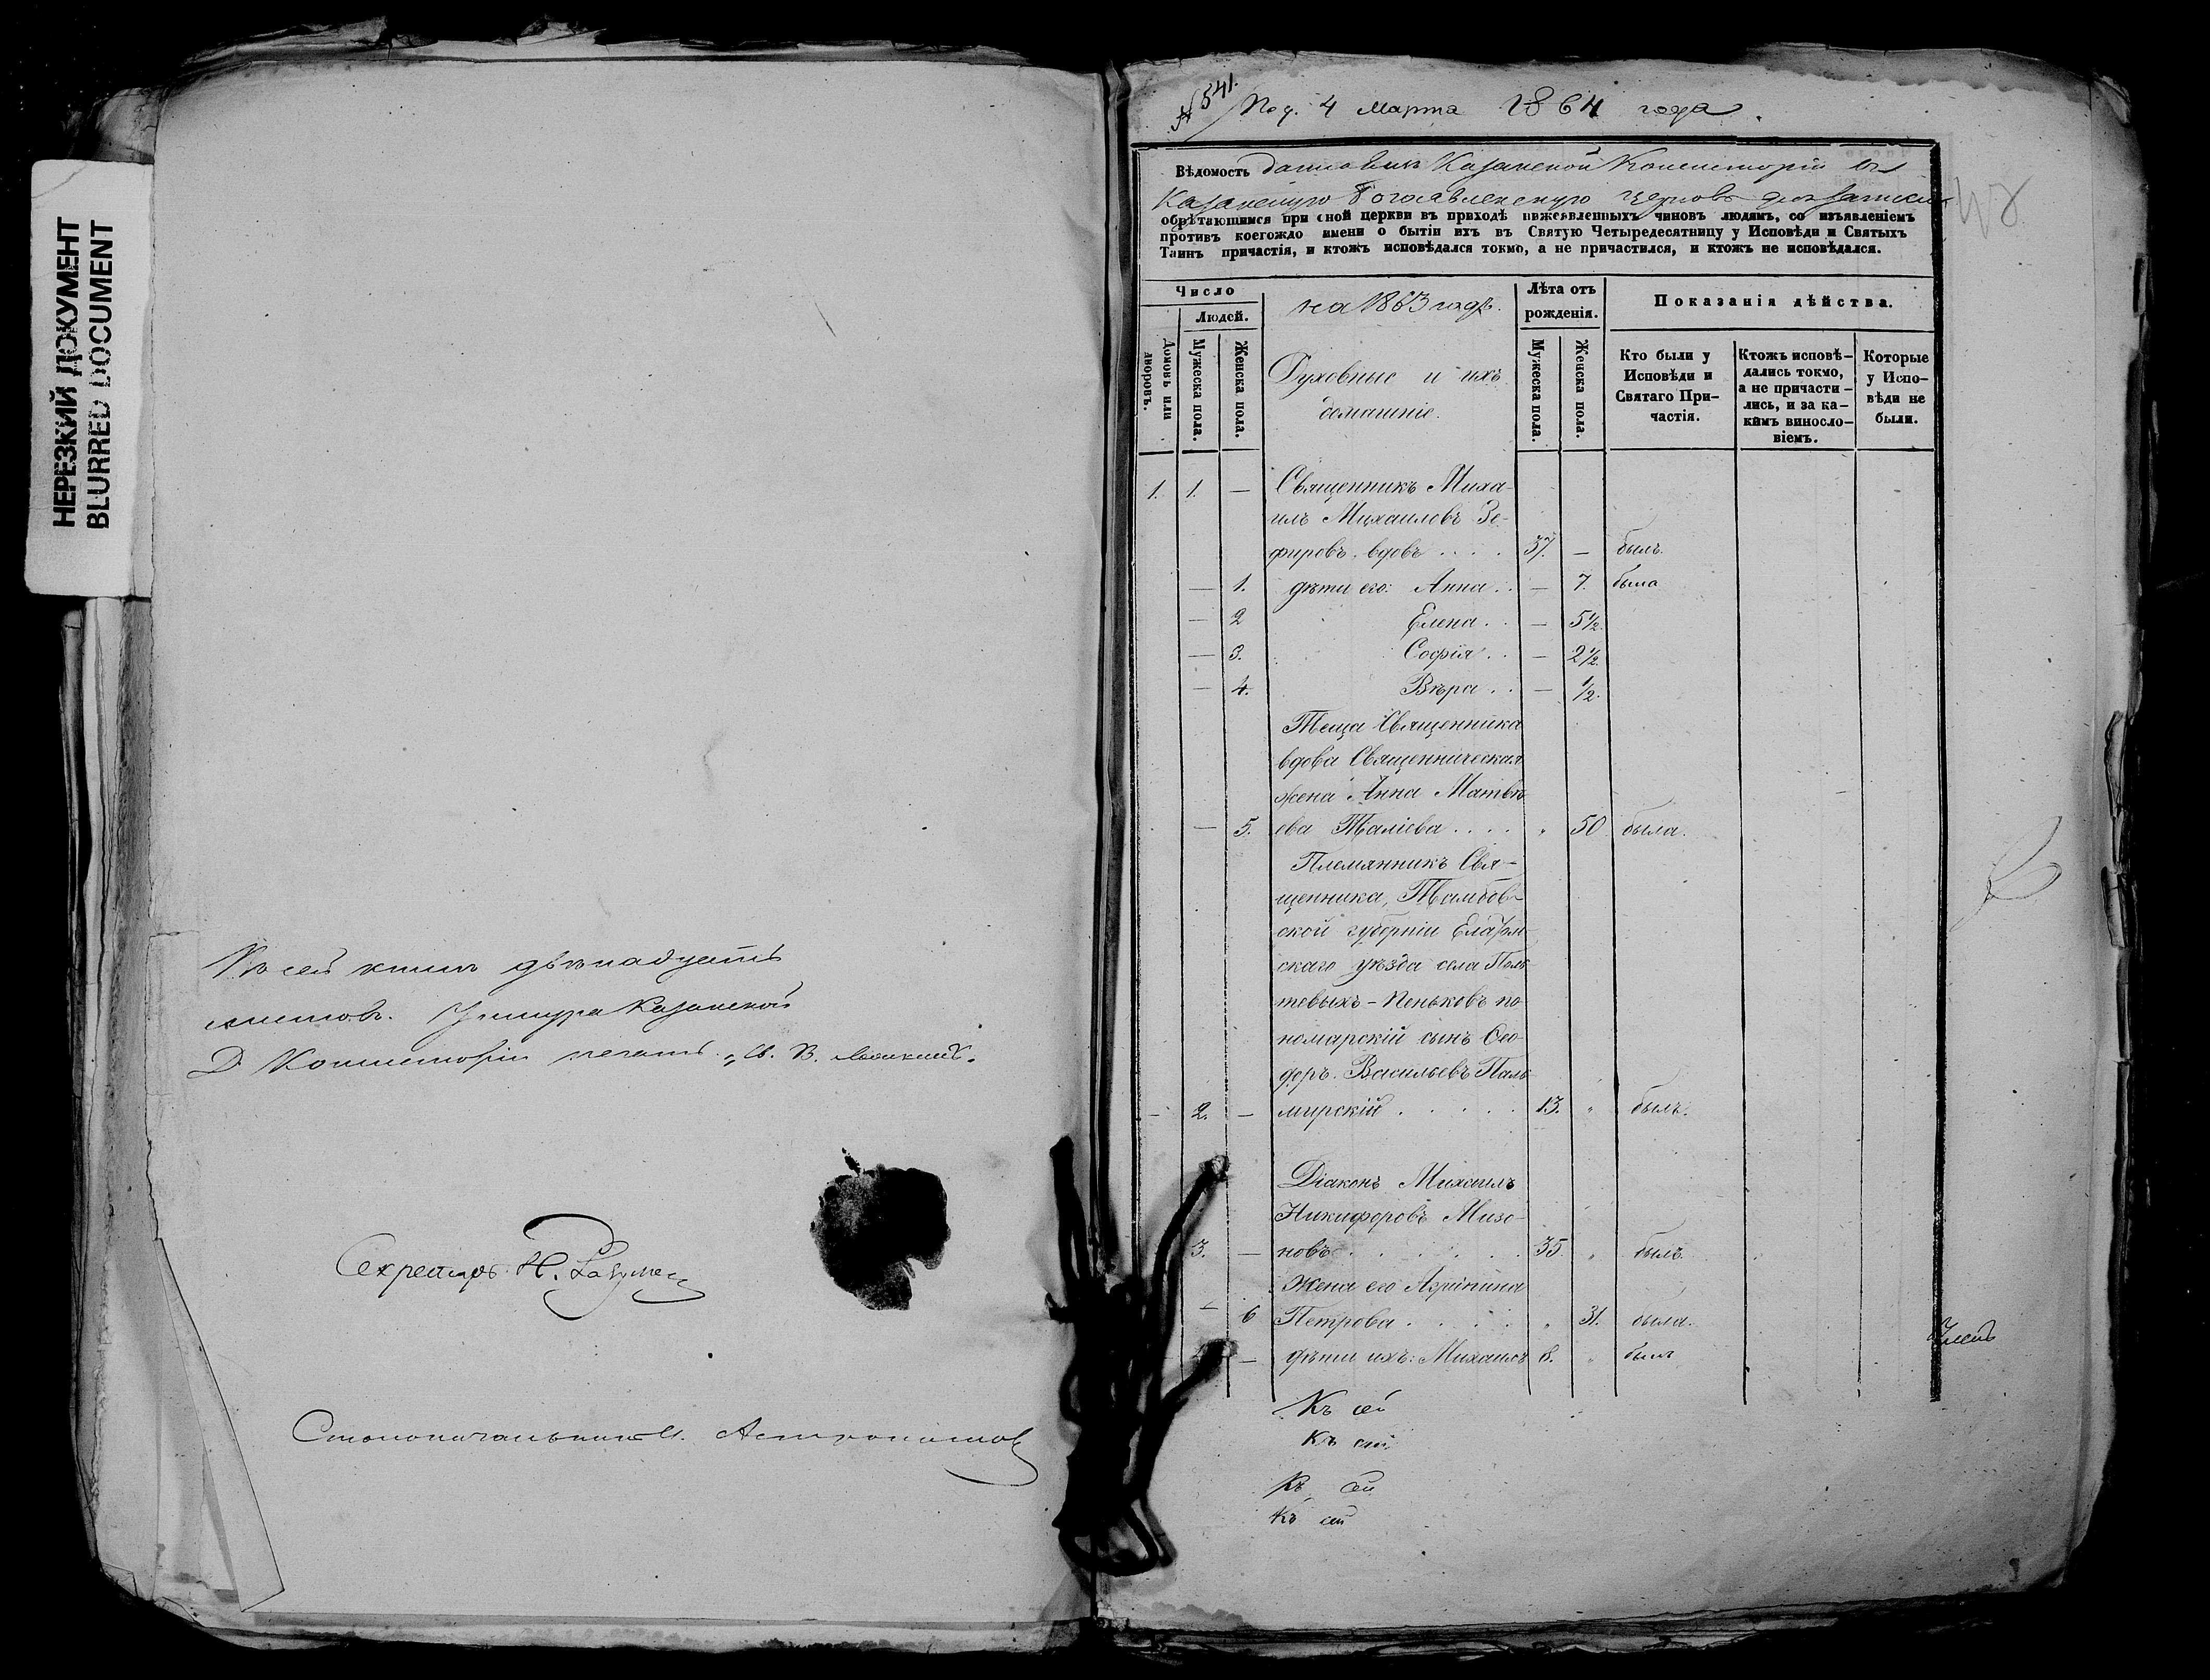 НЕРЕЗКИЙ ДОКУМЕНТ
BLURRED DOCUMENT
Въ сей книгѣ двѣнадцать
листовъ. Казанской
Д Консисторіи печать.
Секретарь Н.
Столоначальникъ
№ 541. Под. 4 Марта 1864 года.
Вѣдомость Казанской Консисторіи въ
Казанскую Богоявленскую церковь для записки
обрѣтающимся при оной церкви въ приходѣ нижеявленныхъ чиновъ людямъ, со изъявленіемъ
противъ коегождо имени о бытіи ихъ въ Святую Четыредесятницу у Исповѣди и Святыхъ
Таинъ причастія, и ктожъ исповѣдался токмо, а не причастился, и ктожъ не исповѣдался.
Число
Людей.
Домовъ или дворовъ.
Мужеска пола.
Женска пола.
на 1863 годъ.
Духовные и ихъ
домашніе.
Лѣта отъ
рожденія.
Мужеска пола.
Женска пола.
Показанія дѣйства.
Кто были у
Исповѣди и
Святаго При-
частія.
Ктожъ исповѣ-
дались токмо,
а не причасти-
лись, и за ка-
кимъ виносло-
віемъ.
Которые
у Испо-
вѣди не
были.
1. 1. — Священникъ Миха-
илъ Михаиловъ Зе-
фировъ, вдовъ . . . . 37. — былъ.
— 1. дѣти его: Анна . . — 7. была
— 2 Елена . . — 5½.
— 3. Софія . . — 2½.
— 4. Вѣра . . — ½.
Теща Священника
вдова Священническая
жена Анна Матвѣ
— 5. ева Таліева . . . . " 50 была.
Племянникъ Свя-
щенника, Тамбов-
ской губерніи Елатом
скаго уѣзда села Поль
тевыхъ-Пеньковъ по-
номарскій сынъ Ѳео-
доръ Васильевъ Паль
— 2. — мирскій . . . . . 13. " былъ.
Діаконъ Михаилъ
Никифоровъ Мизо-
3. — новъ . . . . . . 35. " былъ
Жена его Агрипина
— 6 Петрова . . . . . " 31. была.
— дѣти ихъ: Михаилъ 8. " былъ
Къ сей
Къ сей
Къ сей
Къ сей